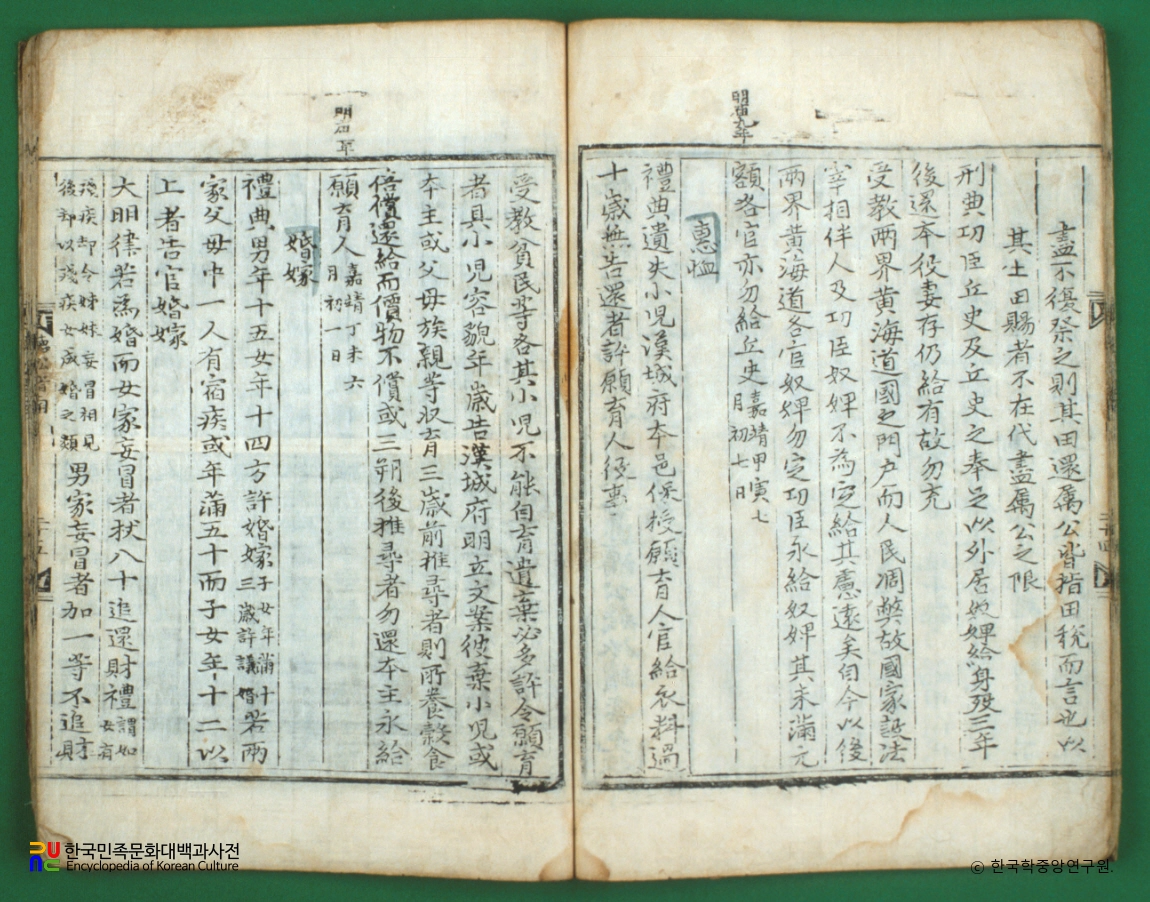 盡不復祭之則其田還屬公皆指田稅而言也以
其土田賜者不在代盡属公之限
刑典功臣丘史及丘史之奉足以外居奴婢給身歿三年
後還本役妻存仍給有故勿充
受敎两界黃海道國之門户而人民凋弊故國家設法
宰相伴人及功臣奴婢不為定給其慮遠矣自今以後
兩界黄海道各官奴婢勿定功臣永給奴婢其未滿元
明宗九年
額各官亦勿給丘史嘉靖甲寅七
月初七日
惠恤
禮典遺失小兒漢城府本邑保授願育人官給衣料過
十歲無告還者許願育人役事
受教貧民等各其小児不能自育遺棄必多許令願育
者具小児容貌年歲告漢城府明立文案後棄小児或
本主或父母族親等収育三歲前推尋者則所養穀食
倍償還給而價物不償或三朔後推尋者勿還本主永給
願育人嘉靖丁未六
月初一日
婚嫁
禮典男年十五女年十四方許婚嫁子女年滿十
三歲許議婚若兩
家父母中一人有宿疾或年滿五十而子女年十二以
上者告官婚嫁
大明律若為婚而女家妄冒者杖八十追還財禮謂如
女有
殘疾却令姊妹妄冒相見
後却以殘疾女成婚之類男家妄冒者加一等不追財
한국민족문화대백과사전
Encyclopedia of Korean Culture
© 한국학중앙연구원.